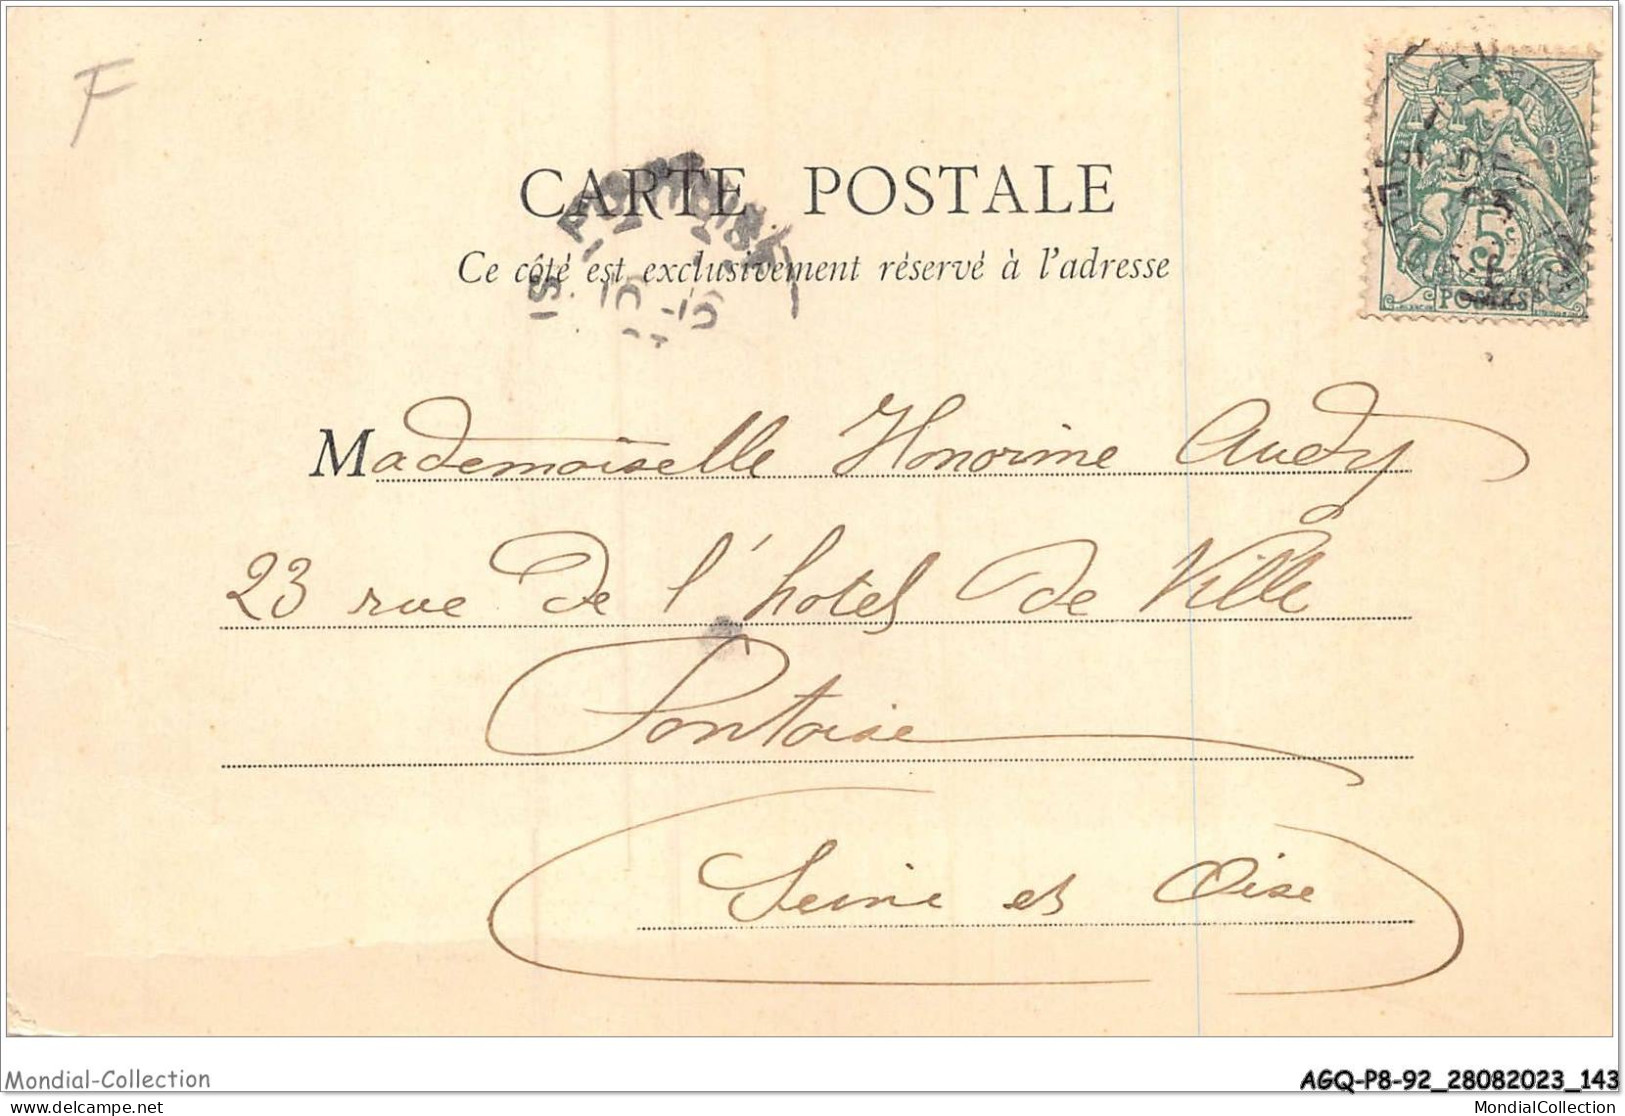 F
CARTE POSTALE
Ce côté est exclusivement réservé à l'adresse
5
POSTES
Mademoiselle Honorine Audy
23 rue de l'hotel de Ville
Pontoise
Seine et Oise
Mondial-Collection
AGQ-P8-92_28082023_143
delcampe.net
MondialCollection